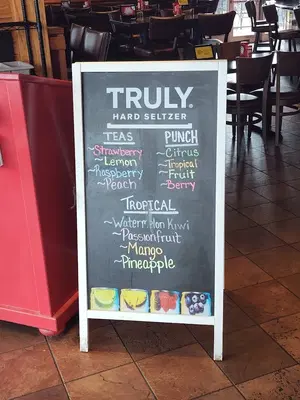 TRULY
HARD SELTZER
TEAS
~Strawberry
~Lemon
~Raspberry
~Peach
PUNCH
~Citrus
~Tropical
~Fruit
~Berry
TROPICAL
~Watermelon Kiwi
~Passionfruit
~Mango
~Pineapple